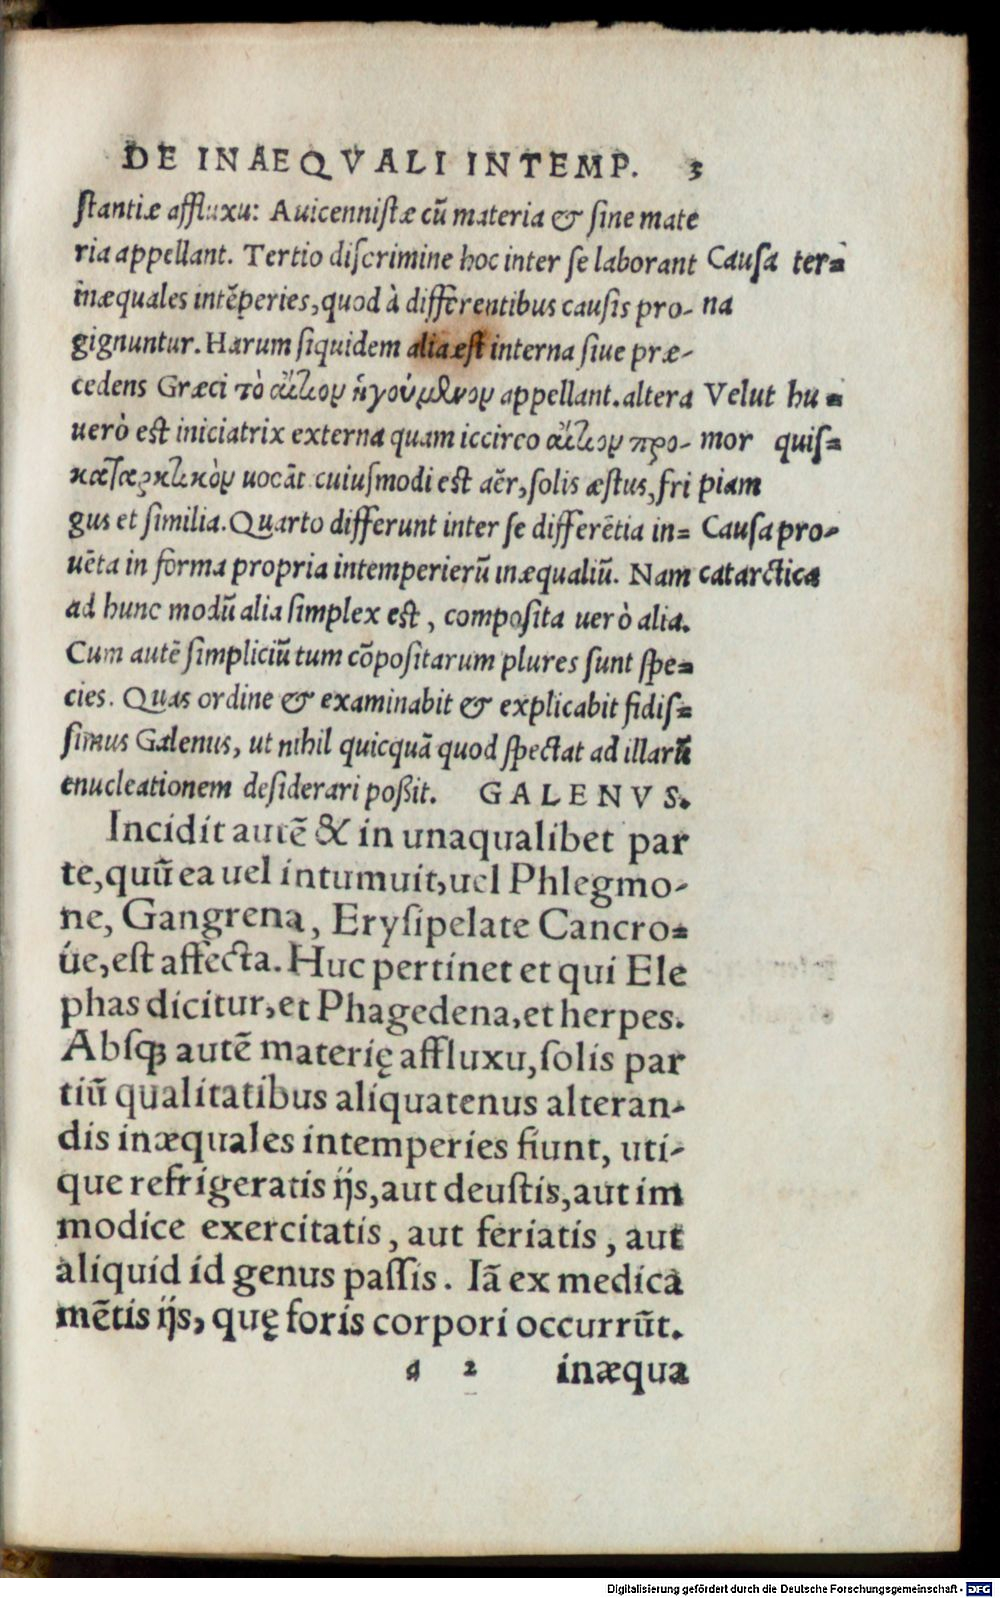 DE INAEQVALI INTEMP. 3
ſtantiæ affluxu: Auicenniſtæ cũ materia & ſine mate
ria appellant. Tertio diſcrimine hoc inter ſe laborant
inæquales intẽperies, quod à differentibus cauſis pro-
gignuntur. Harum ſiquidem alia eſt interna ſiue præ-
cedens Græci τὸ αἴτιον ἡγούμενον appellant. altera
uerò eſt iniciatrix externa quam iccirco αἴτιον προ-
καταρκτικὸν uocãt cuiuſmodi eſt aër, ſolis æſtus, fri
gus et ſimilia. Quarto differunt inter ſe differẽtia in=
uẽta in forma propria intemperierũ inæqualiũ. Nam
ad hunc modũ alia ſimplex eſt, compoſita uerò alia.
Cum autẽ ſimpliciũ tum cõpoſitarum plures ſunt ſpe=
cies. Quas ordine & examinabit & explicabit fidiſ=
ſimus Galenus, ut nihil quicquã quod ſpectat ad illarũ
enucleationem deſiderari poßit. GALENVS.
Incidit autẽ & in unaqualibet par
te, quũ ea uel intumuit, uel Phlegmo-
ne, Gangrena, Eryſipelate Cancro=
úe, eſt affecta. Huc pertinet et qui Ele
phas dicitur, et Phagedena, et herpes.
Abſqꝫ autẽ materię affluxu, ſolis par
tiũ qualitatibus aliquatenus alteran-
dis inæquales intemperies fiunt, uti-
que refrigeratis ijs, aut deuſtis, aut im
modice exercitatis, aut feriatis, aut
aliquid id genus paſſis. Iã ex medica
mẽtis ijs, quę foris corpori occurrũt.
a 2 inæqua
Cauſa ter=
na
Velut hu=
mor quiſ=
piam
Cauſa pro-
catarctica
Digitalisierung gefördert durch die Deutsche Forschungsgemeinschaft - DFG